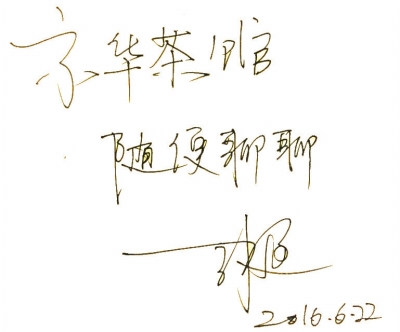 京华茶馆
随便聊聊
2016.6.22